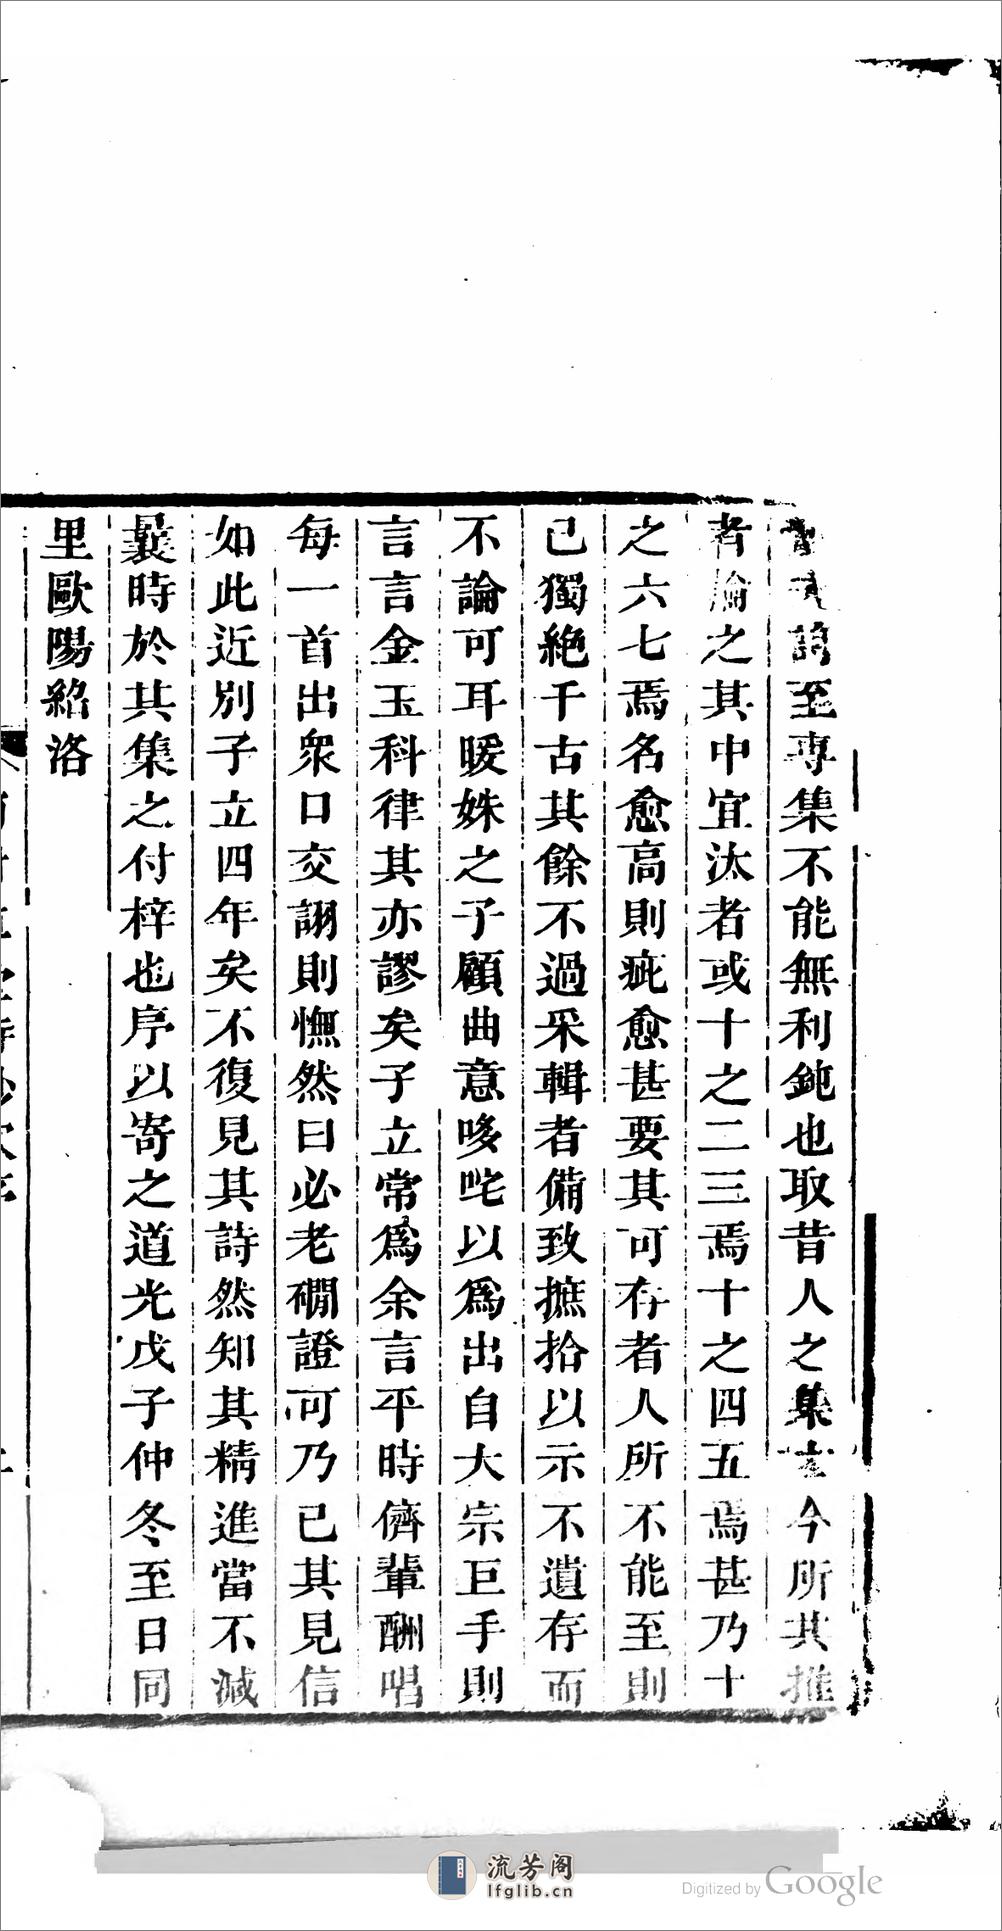 詩至專集不能無利鈍也取昔人之集古今所共推
者論之其中宜汰者或十之二三焉十之四五焉甚乃十
之六七焉名愈高則疵愈甚要其可存者人所不能至則
已獨絶千古其餘不過采輯者備致摭拾以示不遺存而
不論可耳暖姝之子顧曲意㖼咤以爲出自大宗巨手則
言言金玉科律其亦謬矣子立常爲余言平時儕輩酬唱
每一首出衆口交詡則憮然曰必老磵證可乃已其見信
如此近別子立四年矣不復見其詩然知其精進當不減
曩時於其集之付梓也序以寄之道光戊子仲冬至日同
里歐陽紹洛
流芳阁
lfglib.cn
Digitized by Google